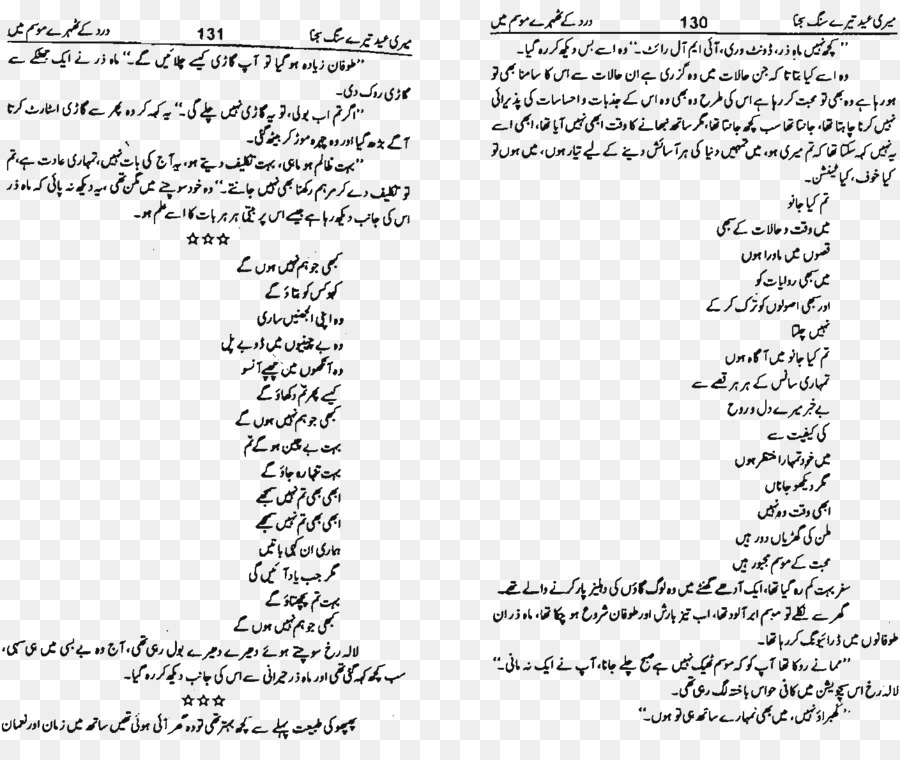 میری عید تیرے سنگ سجنا 130 درد کے ٹھہرے موسم میں
’’کچھ نہیں ماہ ذر، ڈونٹ وری، آئی ایم آل رائٹ۔‘‘ وہ اسے بس دیکھ کر رہ گیا۔
وہ اسے کیا بتاتا کہ جن حالات میں وہ گزری ہے ان حالات سے اس کا سامنا بھی تو
ہو رہا ہے وہ بھی تو محبت کر رہا ہے اس کی طرح وہ بھی وہ اس کے جذبات و احساسات کی پذیرائی
نہیں کرنا چاہتا تھا، جانتا تھا سب کچھ جانتا تھا، مگر ساتھ نبھانے کا وقت ابھی نہیں آیا تھا، ابھی اسے
یہ نہیں کہہ سکتا تھا کہ تم میری ہو، میں تمہیں دنیا کی ہر آسائش دینے کے لیے تیار ہوں، میں ہوں تو
کیا خوف، کیا ٹینشن۔
تم کیا جانو
میں وقت و حالات کے سبھی
قصوں میں ماورا ہوں
میں سبھی روایات کو
اور سبھی اصولوں کو ترک کر کے
نہیں چلتا
تم کیا جانو میں آگاہ ہوں
تمہاری سانس کے ہر ہر قصے سے
بے خبر میرے دل و روح
کی کیفیت سے
میں خود تمہارا منتظر ہوں
مگر دیکھو جاناں
ابھی وقت وہ نہیں
ملن کی گھڑیاں دور ہیں
محبت کے موسم مجبور ہیں
سفر بہت کم رہ گیا تھا، ایک آدھے گھنٹے میں وہ لوگ گاؤں کی دہلیز پار کرنے والے تھے۔
گھر سے نکلے تو موسم ابر آلود تھا، اب تیز بارش اور طوفان شروع ہو چکا تھا، ماہ ذر ان
طوفانوں میں ڈرائیونگ کر رہا تھا۔
’’مما نے روکا تھا آپ کو کہ موسم ٹھیک نہیں ہے صبح چلے جانا، آپ نے ایک نہ مانی۔‘‘
لالہ رخ اس سچویشن میں کافی حواس باختہ لگ رہی تھی۔
’’گھبراؤ نہیں، میں بھی تمہارے ساتھ ہی تو ہوں۔‘‘
میری عید تیرے سنگ سجنا 131 درد کے ٹھہرے موسم میں
’’طوفان زیادہ ہو گیا تو آپ گاڑی کیسے چلائیں گے۔‘‘ ماہ ذر نے ایک جھٹکے سے
گاڑی روک دی۔
’’اگر تم اب بولی، تو یہ گاڑی نہیں چلے گی۔‘‘ یہ کہہ کر وہ پھر سے گاڑی اسٹارٹ کرتا
آگے بڑھ گیا اور وہ چہرہ موڑ کر بیٹھ گئی۔
’’بہت ظالم ہو ماہی، بہت تکلیف دیتے ہو، یہ آج کی بات نہیں، تمہاری عادت ہے، تم
تو تکلیف دے کر مرہم رکھنا بھی نہیں جانتے۔‘‘ وہ خود سوچنے میں مگن تھی، یہ دیکھ نہ پائی کہ ماہ ذر
اس کی جانب دیکھ رہا ہے جیسے اس پر بیتی ہر ہر بات کا اسے علم ہو۔
☆☆☆
کبھی جو ہم نہیں ہوں گے
کہو کس کو بتاؤ گے
وہ اپنی الجھنیں ساری
وہ بے چینیوں میں ڈوبے پل
وہ آنکھوں میں چھپے آنسو
کسے پھر تم دکھاؤ گے
کبھی جو ہم نہیں ہوں گے
بہت بے چین ہو گے تم
بہت تنہا رہ جاؤ گے
ابھی بھی تم نہیں سمجھے
ابھی بھی تم نہیں سمجھے
ہماری ان کہی باتیں
مگر جب یاد آئیں گی
بہت تم پچھتاؤ گے
کبھی جو ہم نہیں ہوں گے
لالہ رخ سوچتے ہوئے دھیرے دھیرے بول رہی تھی، آج وہ بے بسی میں ہی سہی،
سب کچھ کہہ گئی تھی اور ماہ ذر حیرانی سے اس کی جانب دیکھ کر رہ گیا۔
☆☆☆
پھپھو کی طبیعت پہلے سے کچھ بہتر تھی تو وہ گھر آئی ہوئی تھیں ساتھ میں زمان اور نعمان